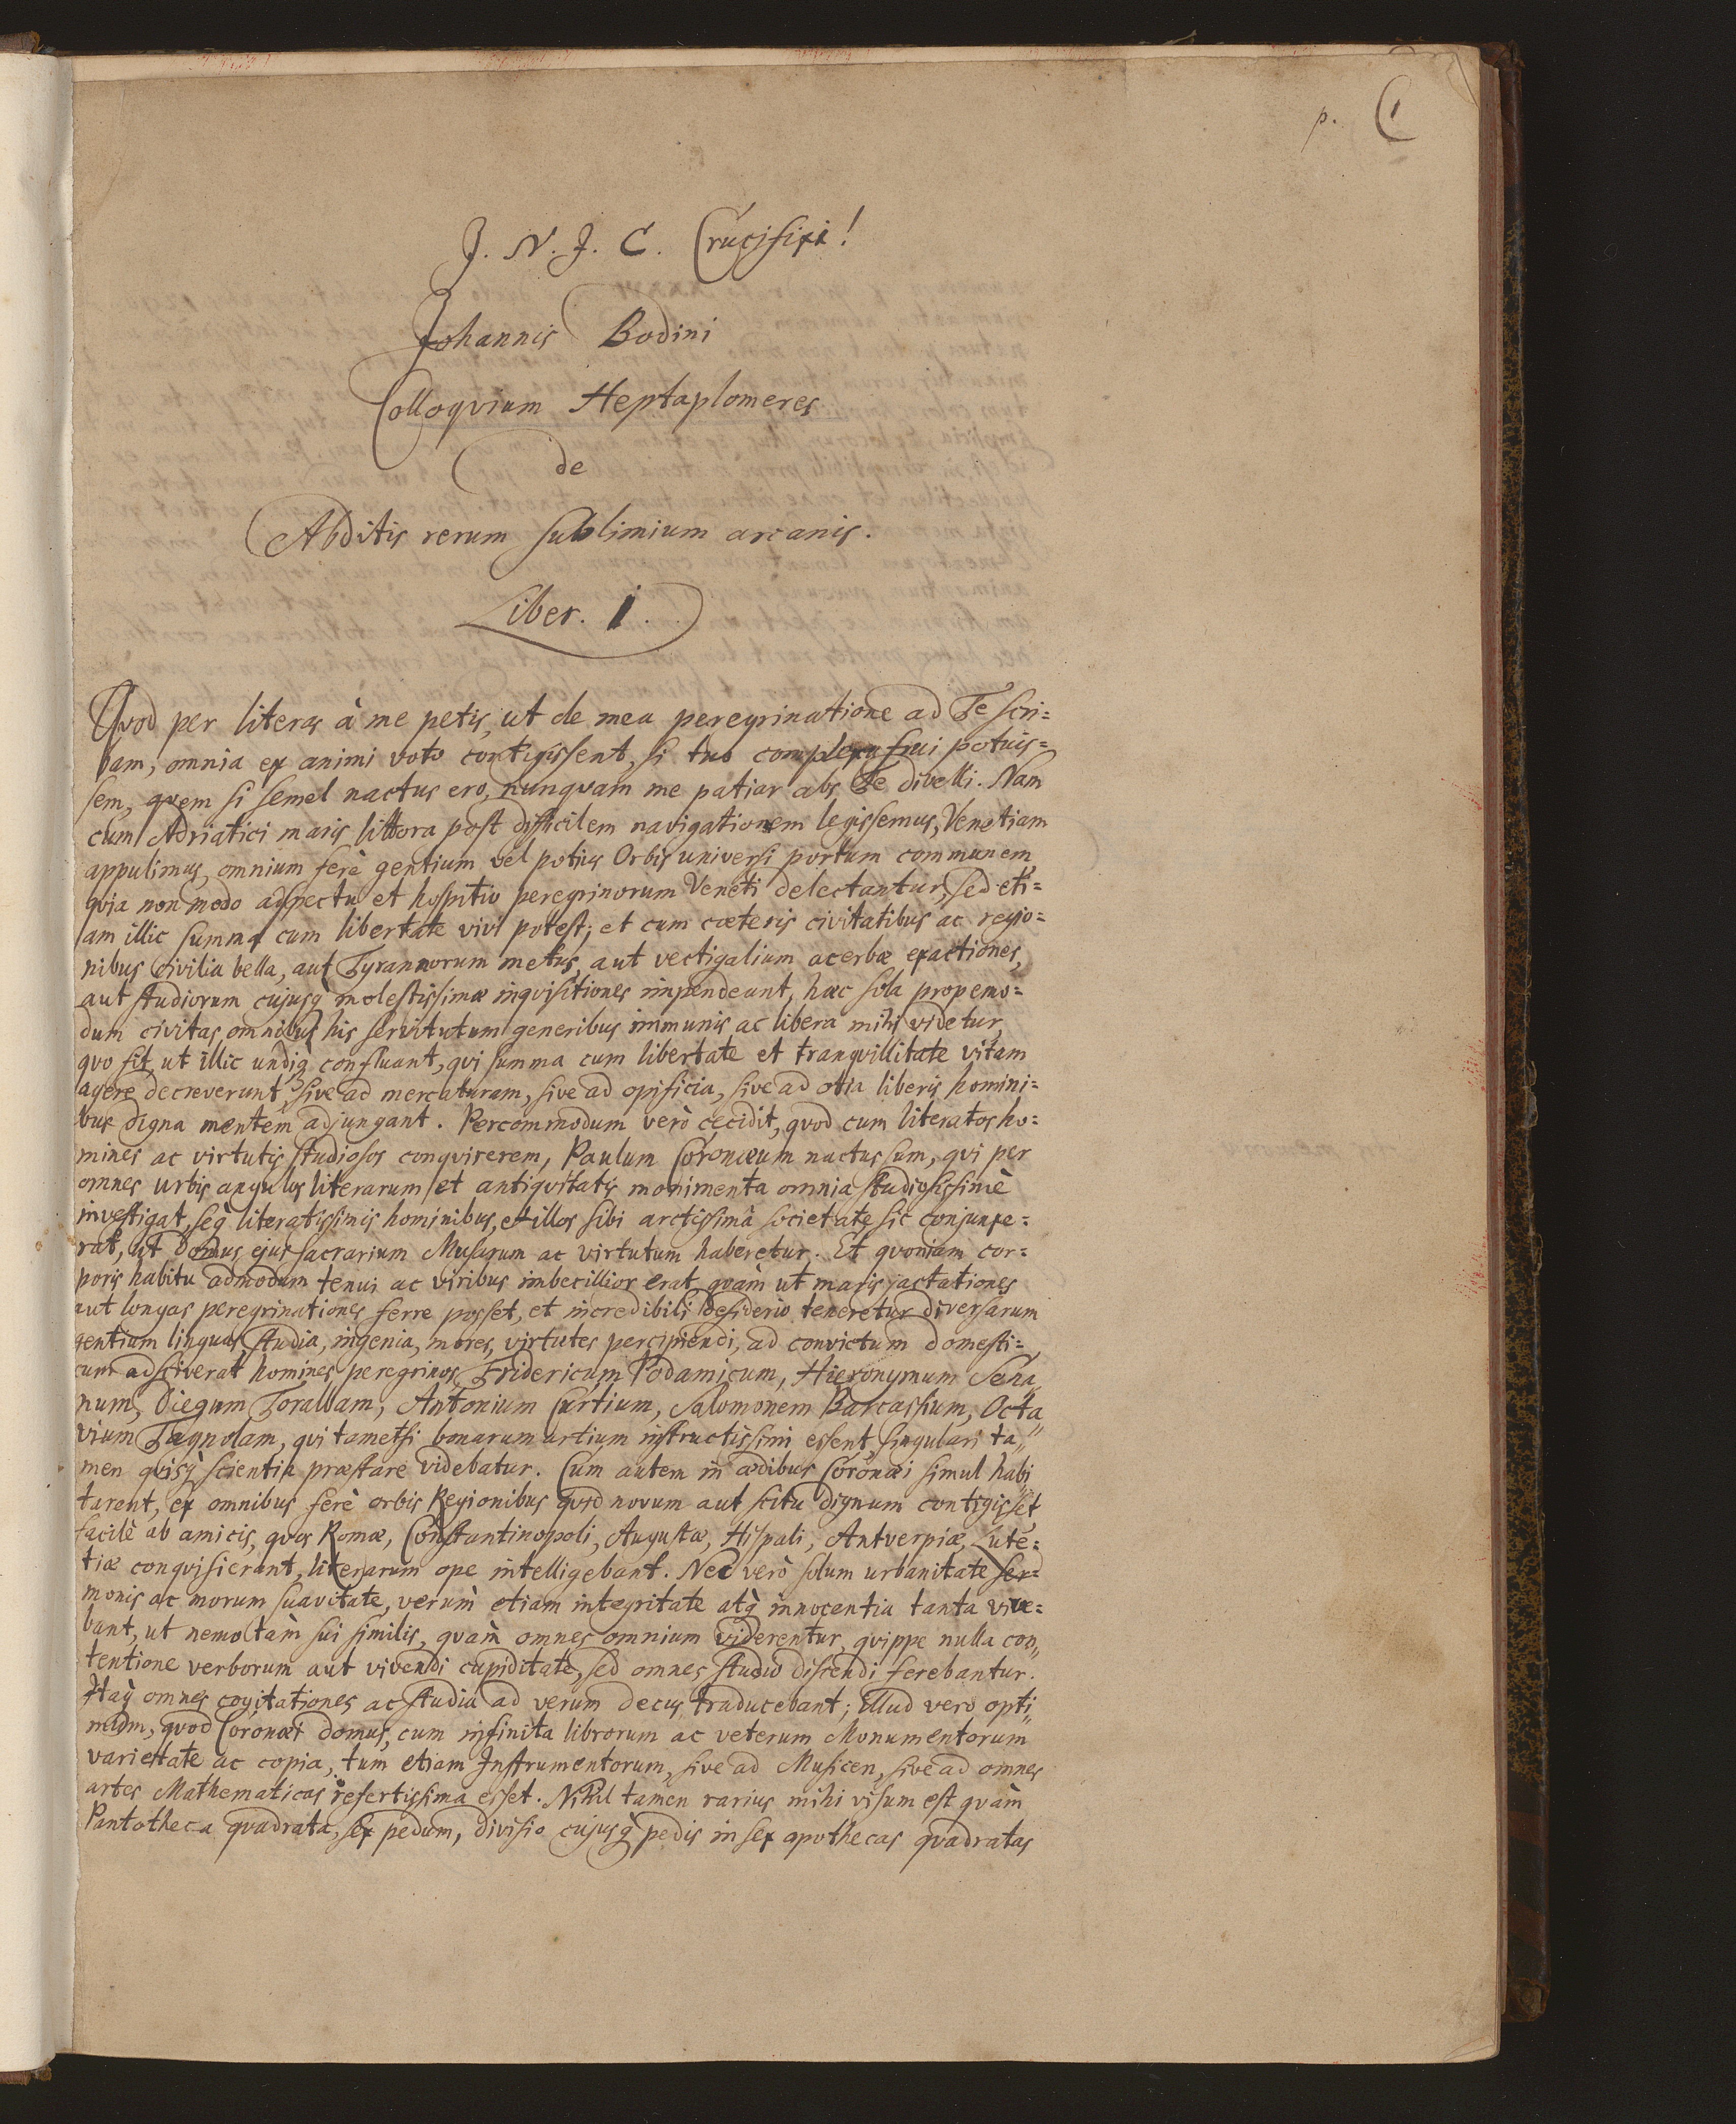 p. 1
J. N. J. C. Crucifixi!
Johannis Bodini
Colloqvium Heptaplomeres
de
Abditis rerum sublimium arcanis.
Liber. I.
Qvod per literas à me petis, ut de mea peregrinatione ad Te scri=
bam, omnia ex animi voto contigissent, si tuo complexu frui potuis=
sem, qvem si semel nactus ero, nunqvam me patiar abs Te divelli. Nam
cum Adriatici maris littora post difficilem navigationem legissemus, Venetiam
appulimus, omnium ferè gentium vel potius Orbis universi portum communem,
qvia non modo adspectu et hospitio peregrinorum Veneti delectantur, sed eti=
am illic summa cum libertate vivi potest; et cum cæteris civitatibus ac regio=
nibus civilia bella, aut Tyrannorum metus, aut vectigalium acerbæ exactiones,
aut studiorum cujusq̀ molestissimæ inqvisitiones impendeant, hæc sola propemo=
dum civitas, omnibus his servitutum generibus immunis ac libera mihi videtur,
qvo fit, ut illic undiq̀ confluant, qvi summa cum libertate et tranqvillitate vitam
agere decreverunt, sive ad mercaturam, sive ad opificia, sive ad otia liberis homini=
bus digna mentem adjungant. Percommodum verò cecidit, qvod cum literatos ho=
mines ac virtutis studiosos conqvirerem, Paulum Coronæum nactus sum, qvi per
omnes urbis angulos literarum et antiqvitatis monimenta omnia studiosissimè
investigat, seq̀ literatissimis hominibus, et illos sibi arctissimâ societate sic conjunxe=
rat, ut domus ejus sacrarium Musarum ac virtutum haberetur. Et qvoniam cor=
poris habitu admodum tenui ac viribus imbecillior erat, qvàm ut maris jactationes
aut longas peregrinationes ferre posset, et incredibili desiderio teneretur diversarum
gentium linguas, studia, ingenia, mores, virtutes percipiendi, ad convictum domesti=
cum adsciverat homines peregrinos, Fridericum Podamicum, Hieronymum Sena„
num, Diegum Toralbam, Antonium Curtium, Salomonem Barcassium, Octa„
vium Fagnolam, qvi tametsi bonarum artium instructissimi essent, singulari ta„
men qvisq̀ scientia præstare videbatur. Cum autem in ædibus Coronæi simul habi„
tarent, ex omnibus ferè orbis Regionibus qvid novum aut scitu dignum contigisset,
facilè ab amicis, qvos Romæ, Constantinopoli, Augustæ, Hispali, Antverpiæ, Lute=
tiæ conqvisierant, literarum ope intelligebant. Nec verò solum urbanitate ser=
monis ac morum suavitate, verùm etiam integritate atq̀ innocentia tanta vive=
bant, ut nemo tàm sui similis, qvàm omnes omnium viderentur, qvippe nulla con„
tentione verborum aut vivendi cupiditate, sed omnes studio discendi ferebantur.
Itaq̀ omnes cogitationes ac studia ad verum decus traducebant; illud vero opti„
mum, qvod Coronæi domus, cum infinita librorum ac veterum Monumentorum
varietate ac copia, tum etiam Instrumentorum, sive ad Musicen, sive ad omnes
artes Mathematicas refertissima esset. Nihil tamen rarius mihi visum est qvàm
Pantotheca qvadrata, sex pedum, divisio cujusq̀ pedis in sex apothecas qvadratas